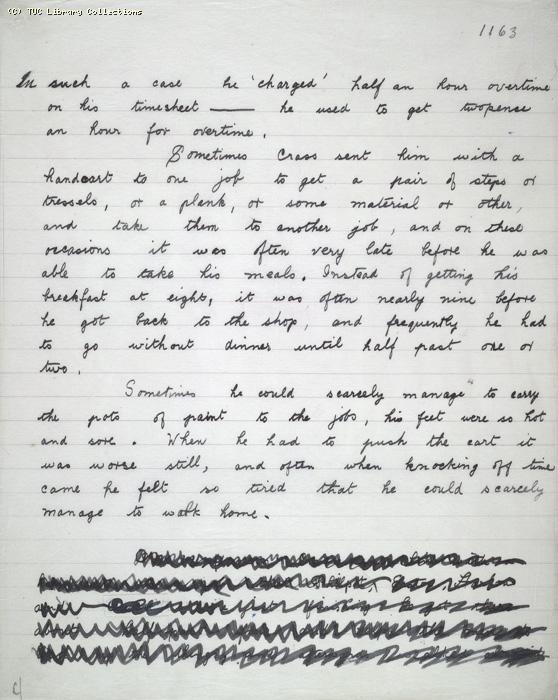 (C) TUC Library Collections
1163
In such a case he 'charged' half an hour overtime
on his timesheet —— he used to get twopence
an hour for overtime.
Sometimes Crass sent him with a
handcart to one job to get a pair of steps or
tressels, or a plank, or some material or other,
and take them to another job, and on these
occasions it was often very late before he was
able to take his meals. Instead of getting his
breakfast at eight, it was often nearly nine before
he got back to the shop, and frequently he had
to go without dinner until half past one or
two.
Sometimes he could scarcely manage to carry
the pots of paint to the jobs, his feet were so hot
and sore. When he had to push the cart it
was worse still, and often when knocking off time
came he felt so tired that he could scarcely
manage to walk home.